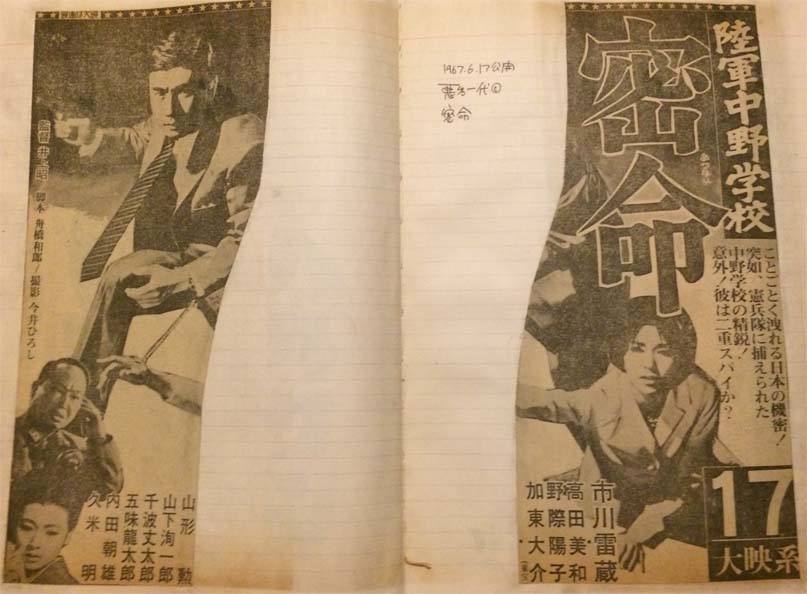 映画は大映
監督 井上昭 脚本 舟橋和郎/撮影 今井ひろし
山形 勲
山下洵一郎
千波丈太郎
五味龍太郎
内田朝雄
久米 明
1967.6.17公開
一代
密命
陸軍中野学校
密命
ことごとく洩れる日本の機密!
突如、憲兵隊に捕えられた
中野学校の精鋭!
意外!彼は二重スパイか?
市川雷蔵
高田美和
野際陽子
加東大介
17
大映系